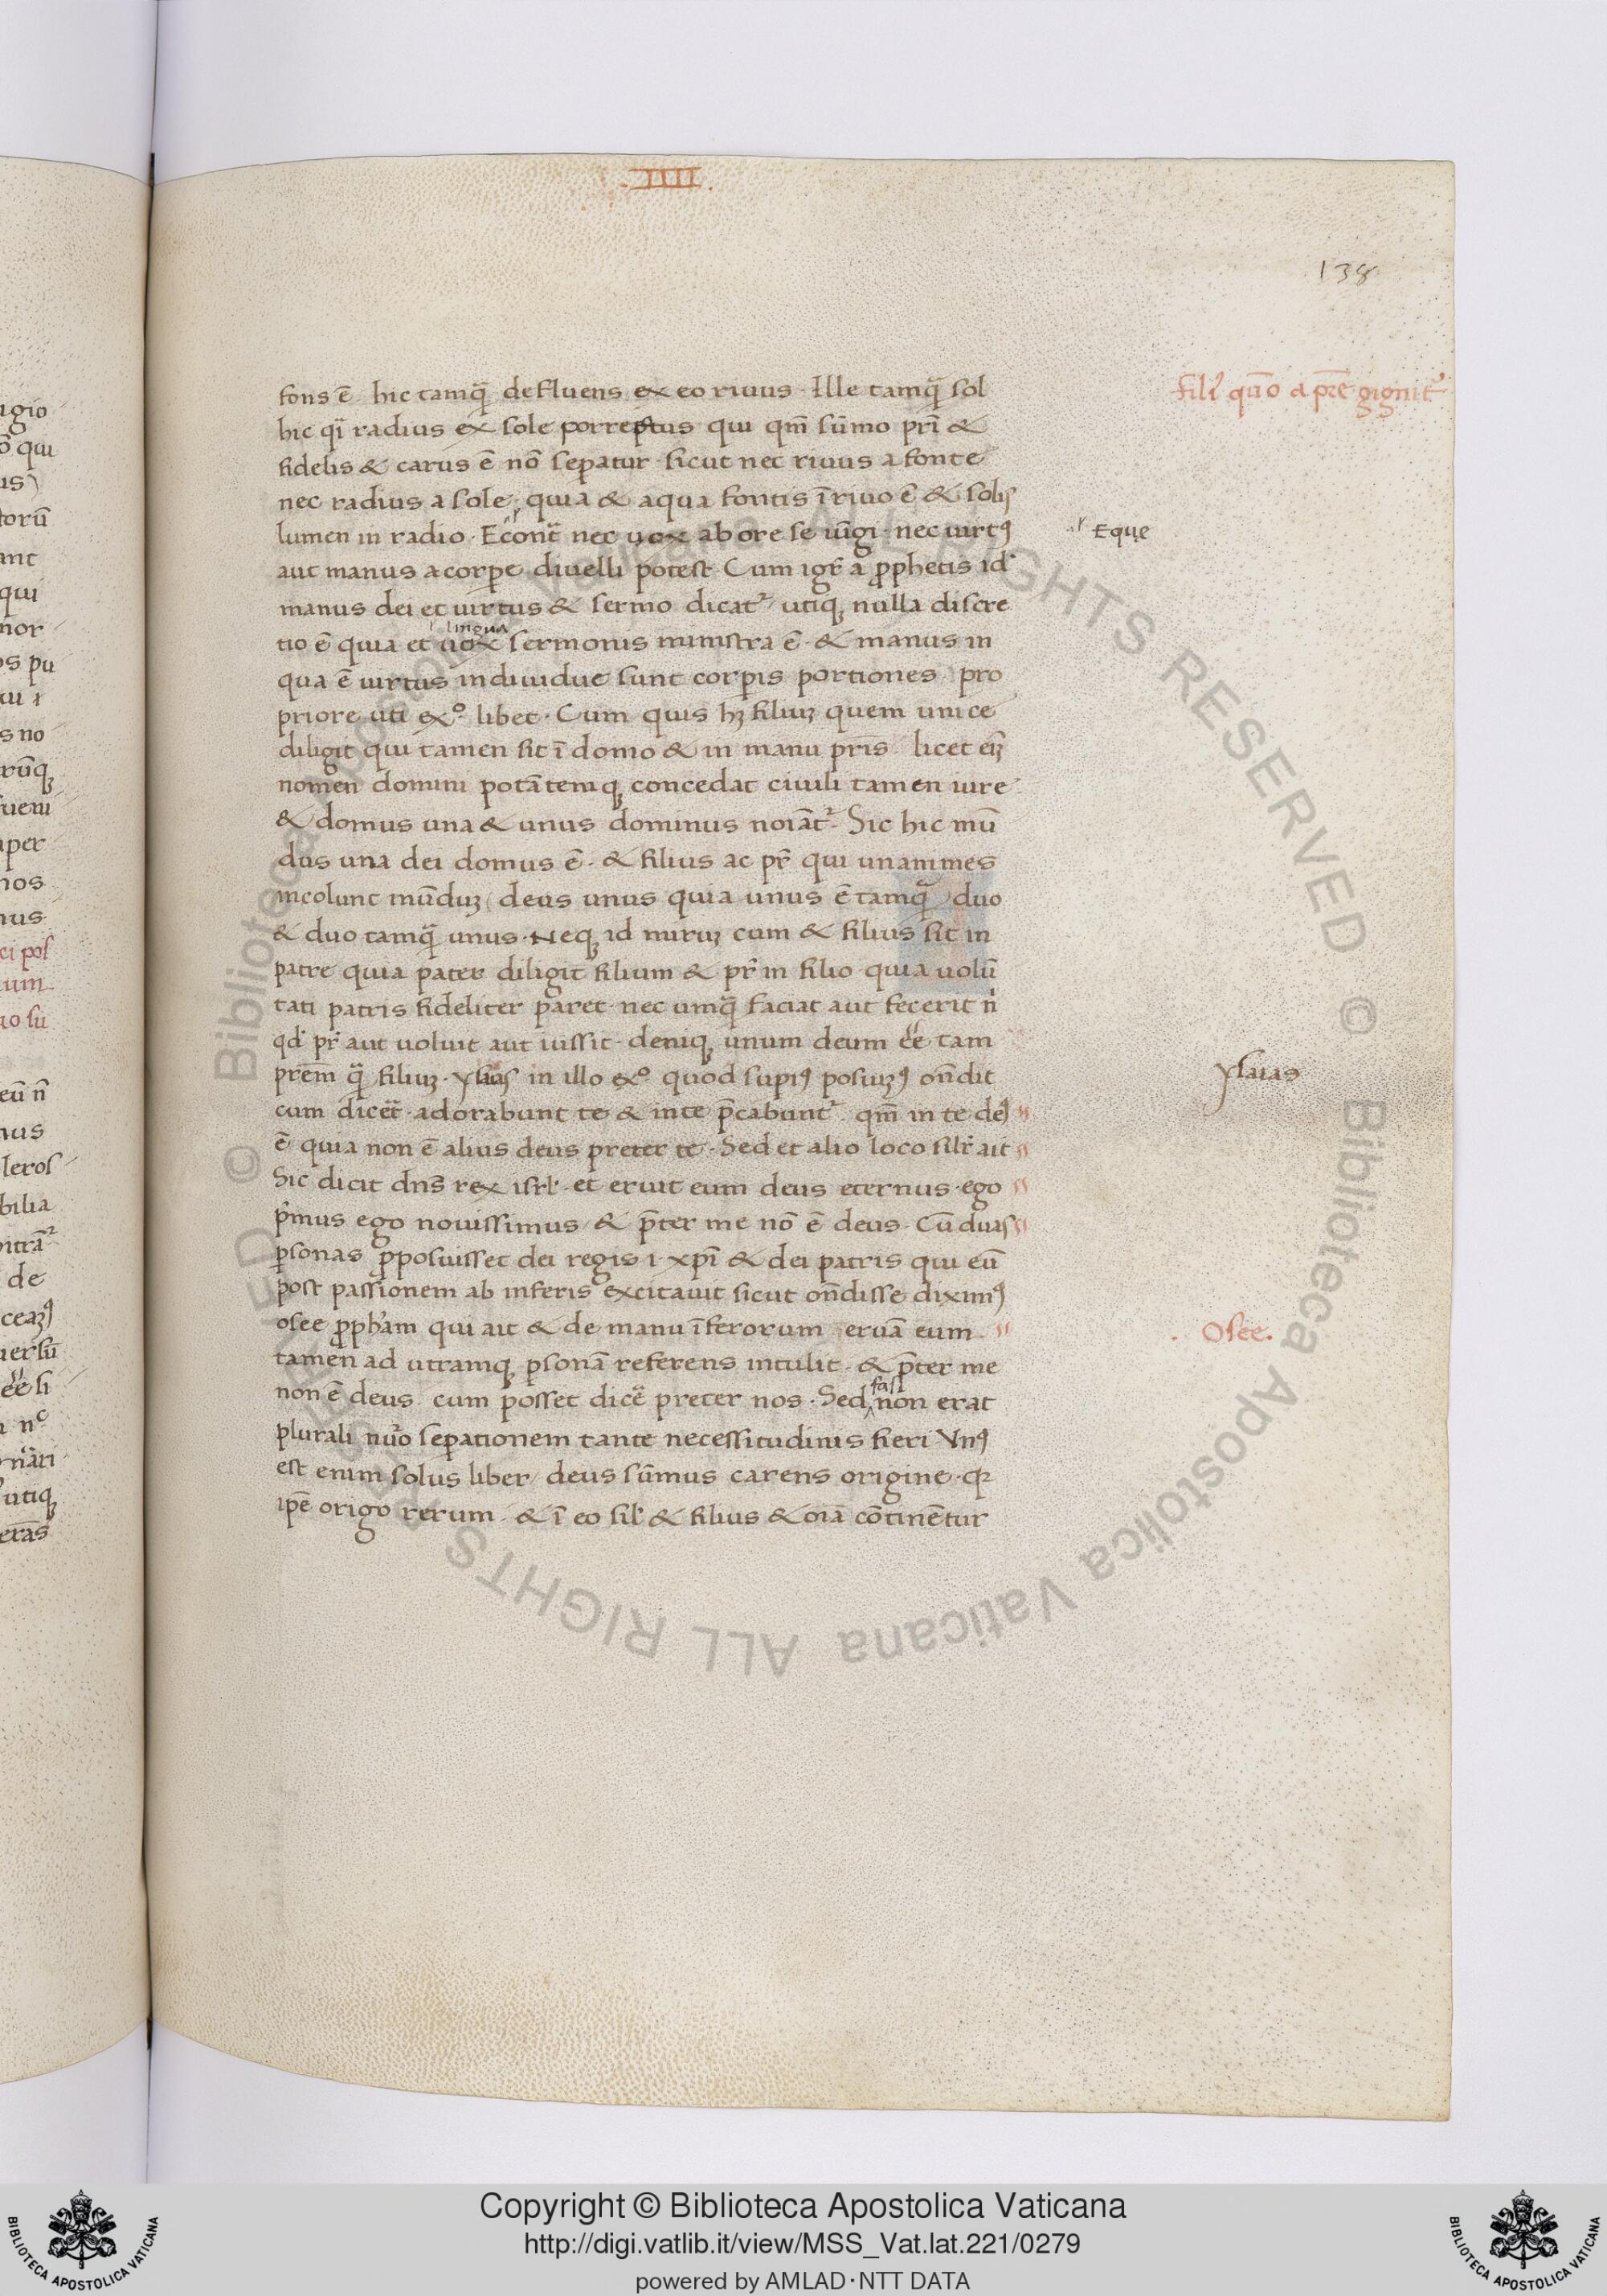 .IIII.
138
fons ē hic tamq̄ defluens ex eo riuus · Ille tamq̄ sol
fili⁹ quō a p̄re gignit᷑
hic q̄i radius ex sole porrectus qui qm̄ sūmo pr̄i &
fidelis & carus ē nō sep̱atur · sicut nec riuus a fonte
nec radius a sole · quia & aqua fontis ī riuo ē & solis
lumen in radio · Econt̄ nec uox ab ore seiūgi · nec uirt⁹
Eque
aut manus a corp̱e diuelli potest · Cum igr̄ a p̱phetis id'
manus dei et uirtus & sermo dicat᷑ utiq; nulla discre
lingua
tio ē quia et uox sermonis ministra ē · & manus in
qua ē uirtus indiuidue sunt corp̱is portiones · pro
priore uti exº libet · Cum quis hȝ filiuȝ quem unice
diligit qui tamen sit ī domo & in manu pr̄is · licet eiȝ
nomen domini potātemq; concedat ciuili tamen iure
& domus una & unus dominus noīat᷑ · Sic hic mū
dus una dei domus ē · & filius ac pr̄ qui unanimes
incolunt mūduȝ / deus unus quia unus ē tamq̄ duo
& duo tamq̄ unus · Neq; id miruȝ cum & filius sit in
patre quia pater diligit filium & pr̄ in filio quia uolū
tati patris fideliter paret · nec umq̄ faciat aut fecerit n̄
qd' pr̄ aut uoluit aut iussit · deniq; unum deum ēē tam
prēm q̄ filiuȝ · ysaias in illo exº quod supi⁹ posuiȝ⁹ on̄dit
ysaias
cum dicēt · adorabunt te & in te p̄cabunt᷑ · qm̄ in te de⁹
ē quia non ē alius deus preter te · Sed et alio loco silr̄ ait
Sic dicit dn̄s rex isrl' · et eruit eum deus eternus · ego
p̄mus ego nouissimus / & p̄ter me nō ē deus · Cū duas
p̱sonas p̱posuisset dei regis · i · xp̄i & dei patris qui eū
post passionem ab inferis excitauit sicut on̄disse dixim⁹
osee p̱ph'am qui ait & de manu īferorum eruā eum
Osee.
tamen ad utramq; p̱sonā referens intulit · & p̄ter me
non ē deus cum posset dicē preter nos · Sed fas non erat
plurali nūo sep̱ationem tante necessitudinis fieri Vn⁹
est enim solus liber / deus sūmus carens origine · qꝛ
ipē origo rerum · & ī eo sil' & filius & oīa cōtinētur
Copyright © Biblioteca Apostolica Vaticana
http://digi.vatlib.it/view/MSS_Vat.lat.221/0279
powered by AMLAD·NTT DATA